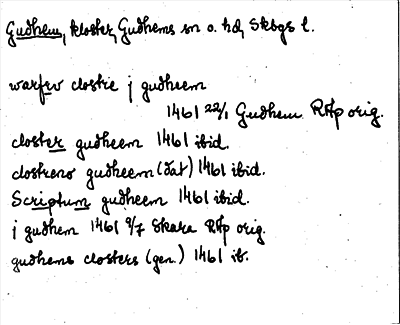 Gudhem, kloster, Gudhems sn o. hd, Skbgs l.
warfrv clostre j gudheem
1461 22/1 Gudhem RAp orig.
closter gudheem 1461 ibid.
clostreno gudheem (dat) 1461 ibid.
Scriptum gudheem 1461 ibid.
j gudhem 1461 9/7 Skara RAp orig.
gudhems closters (gen.) 1461 ib.